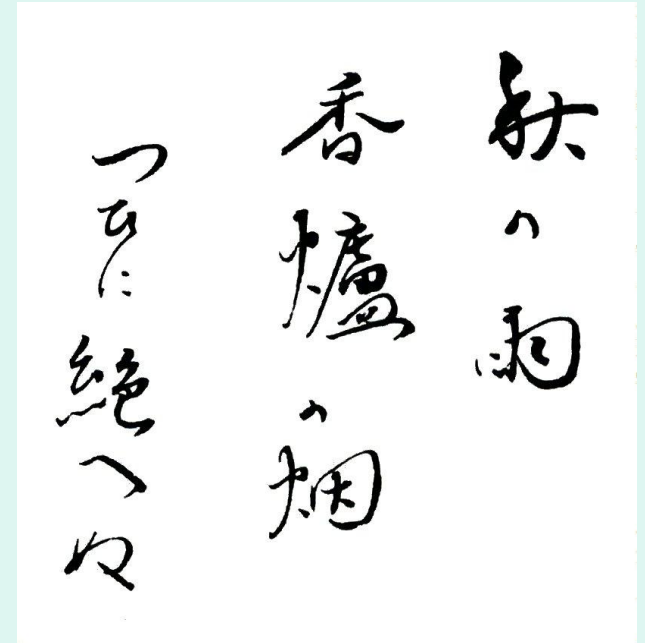 秋の雨
香爐の烟
つひに絶へぬ